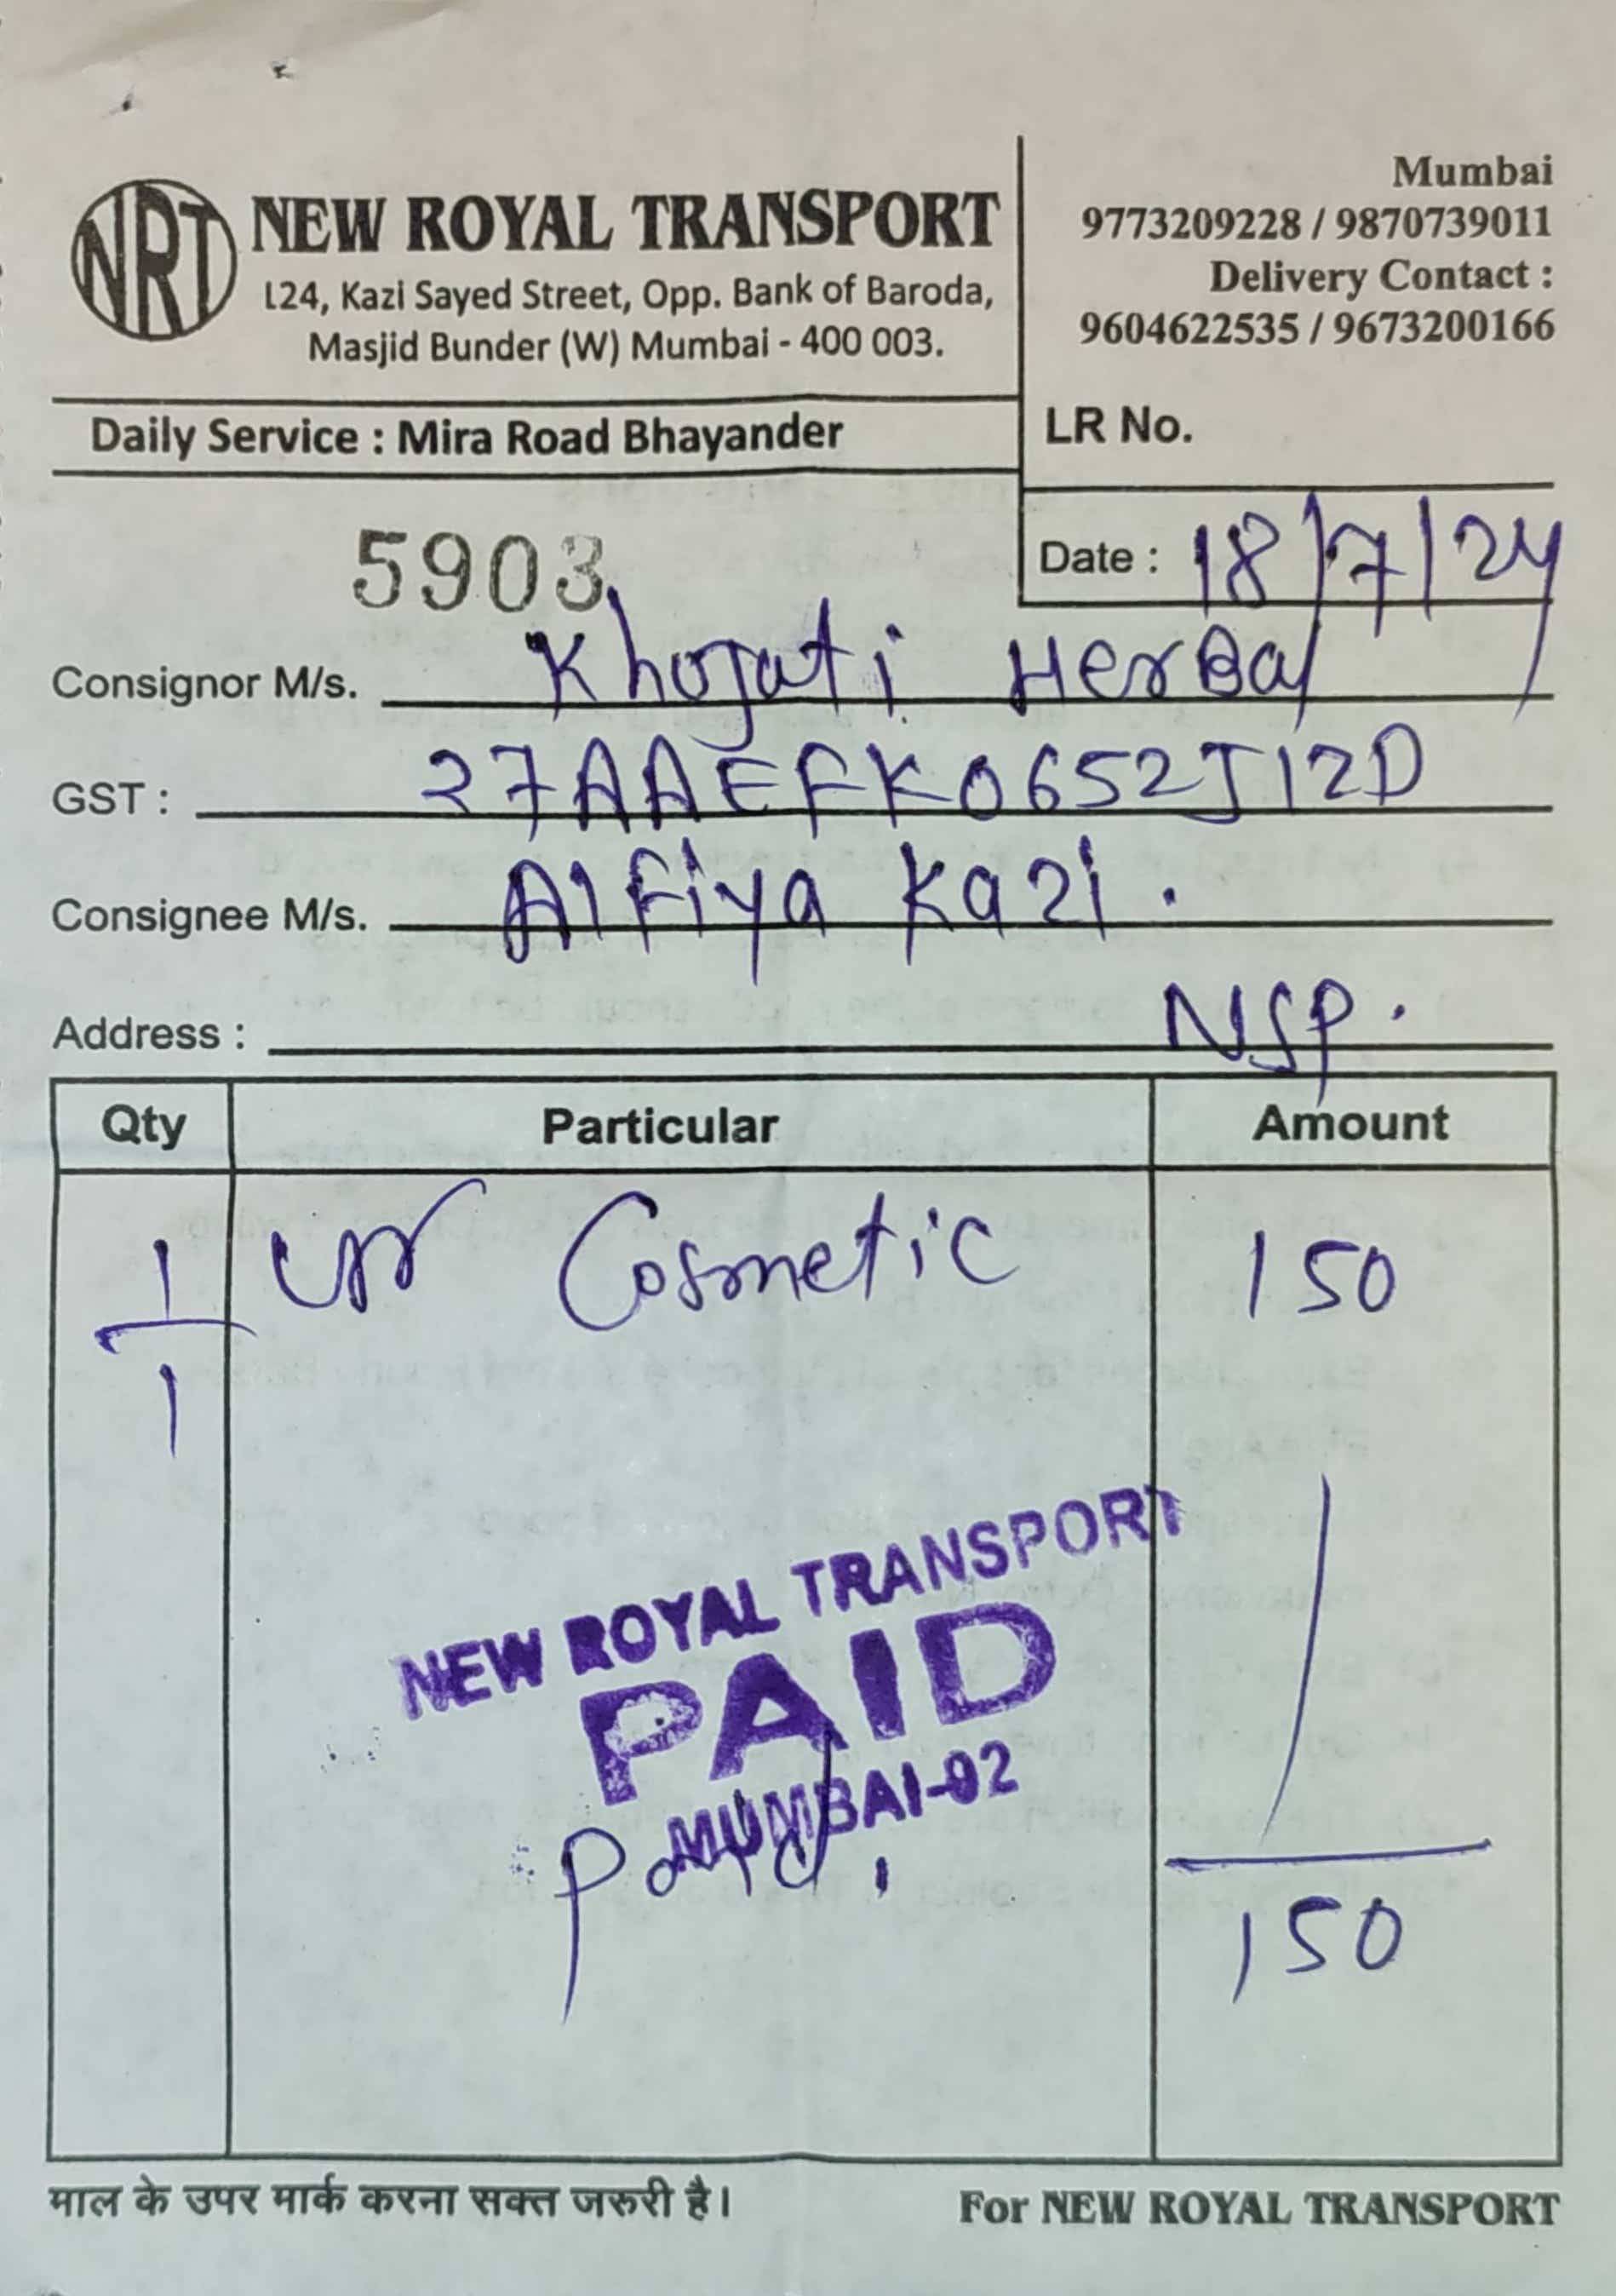 NRT
NEW ROYAL TRANSPORT
124, Kazi Sayed Street, Opp. Bank of Baroda,
Masjid Bunder (W) Mumbai - 400 003.
Mumbai
9773209228 / 9870739011
Delivery Contact :
9604622535 / 9673200166
Daily Service : Mira Road Bhayander
LR No.
5903
Date : 18/7/24
Consignor M/s. Khojati Herbal
GST : 27AAEFK0652J1ZD
Consignee M/s. Alfiya Kazi.
Address : NSP.
Qty Particular Amount
1 Cosmetic 150
1
NEW ROYAL TRANSPORT
PAID
MUMBAI-02
Paid.
150
माल के उपर मार्क करना सक्त जरुरी है।
For NEW ROYAL TRANSPORT